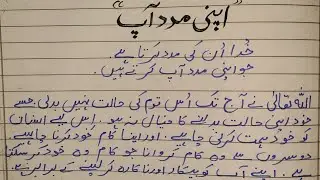 "اپنی مدد آپ"
خُدا اُن کی مدد کرتا ہے۔
جو اپنی مدد آپ کرتے ہیں۔
اللہ تعالٰی نے آج تک اُس قوم کی حالت نہیں بدلی جسے
خود اپنی حالت بدلنے کا خیال نہ ہو۔ اس لیے انسان
کو خود ہمت کرنی چاہیے۔ اور اپنا کام خود کرنا چاہیے۔
دوسروں سے وہ کام کروانا جو کام وہ خود کر سکتا
ہے۔ اپنے آپ کو بیکار اور ناکارہ کر لینے کے برابر ہے۔